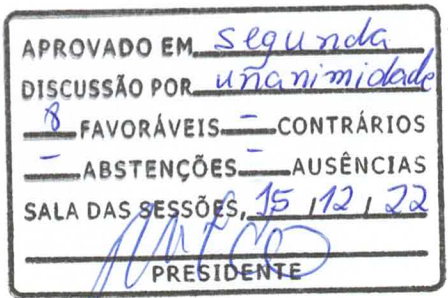 APROVADO EM segunda
DISCUSSÃO POR unanimidade
8 FAVORÁVEIS - CONTRÁRIOS
- ABSTENÇÕES - AUSÊNCIAS
SALA DAS SESSÕES, 15 / 12 / 22
PRESIDENTE